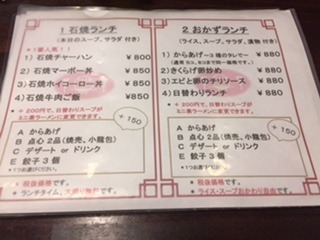 1 石焼ランチ
(本日のスープ、サラダ 付き)
★1番人気!!
1) 石焼チャーハン ￥800
2) 石焼マーボー丼 ￥850
3) 石焼ホイコーロー丼 ￥850
4) 石焼牛肉ご飯 ￥850
＊200円で、日替わりスープが
ミニ魚ラーメンに変更できます。
+150
A からあげ
B 点心2品(焼売、小籠包)
C デザート or ドリンク
E 餃子3個
＊1つお選びください。
★ 税抜価格です。
★ ランチタイム、大盛り無料です。
2 おかずランチ
(ライス、スープ、サラダ、漬物 付き)
1) からあげ ￥880
2) きくらげ卵炒め ￥880
3) エビと卵のチリソース ￥880
4) 日替わりランチ ￥880
+150
A からあげ
B 点心2品(焼売、小籠包)
C デザート or ドリンク
E 餃子3個
★ 税抜価格です。
★ ライス・スープおかわり自由です。